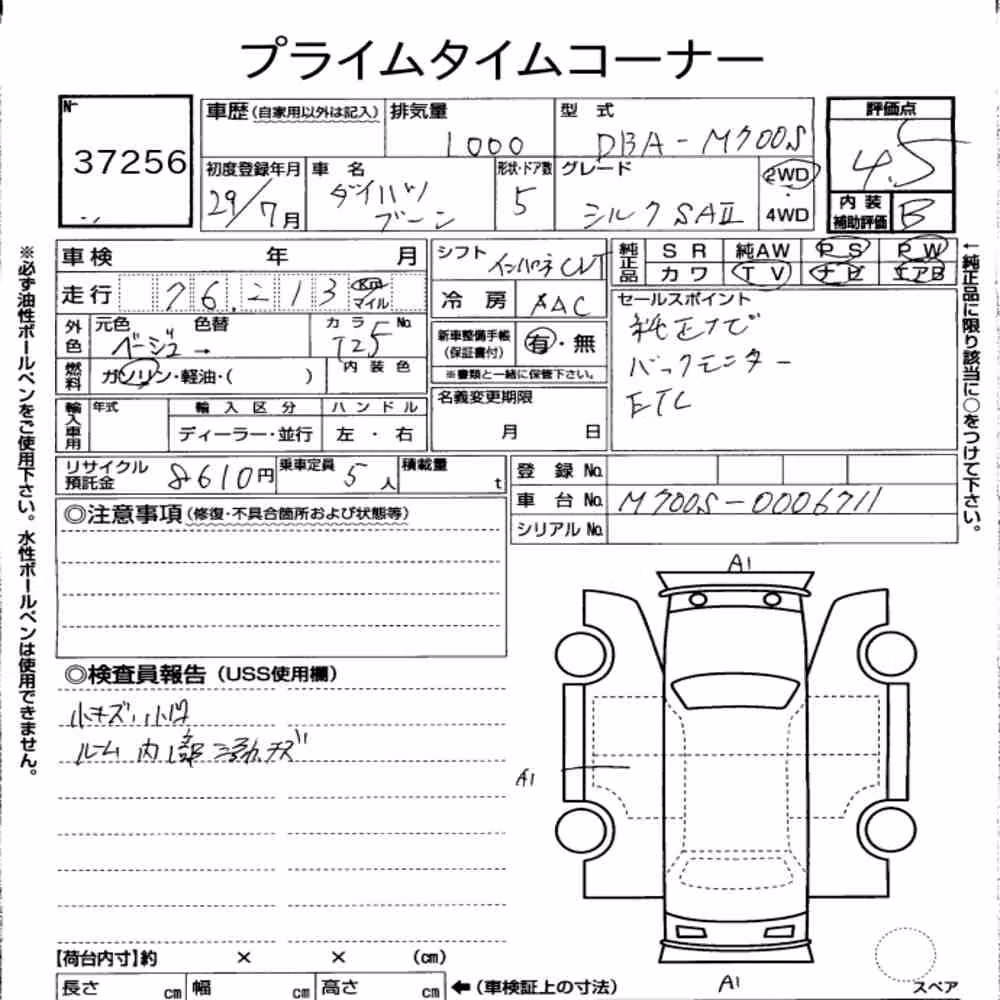 プライムタイムコーナー
№
37256
車歴(自家用以外は記入) 排気量 1000
型式 DBA-M700S
評価点 4.5
初度登録年月 29/7月
車名 ダイハツ ブーン
形状・ドア数 5
グレード シルク SAⅡ
2WD・4WD
内装補助評価 B
車検 年 月
シフト インパネ CVT
純正品 SR 純AW PS PW
カワ TV ナビ エアB
走行 76,213 Km マイル
冷房 AAC
セールスポイント
純正ナビ
バックモニター
ETC
外色 元色 ベージュ 色替 →
カラーNo. T25
新車整備手帳(保証書付) 有・無
※書類と一緒に保管下さい。
燃料 ガソリン・軽油・( )
内装色
名義変更期限
月 日
輸入車用 年式 輸入区分 ハンドル
ディーラー・並行 左・右
リサイクル預託金 8610円
乗車定員 5人
積載量 t
登録No.
車台No. M700S-0006711
シリアルNo.
◎注意事項(修復・不具合箇所および状態等)
◎検査員報告(USS使用欄)
小キズ、小凹
ルーム内
A1
A1
A1
【荷台内寸】約 × × (cm)
長さ cm 幅 cm 高さ cm ←(車検証上の寸法)
スペア
※必ず油性ボールペンをご使用下さい。水性ボールペンは使用できません。
←純正品に限り該当に○をつけて下さい。